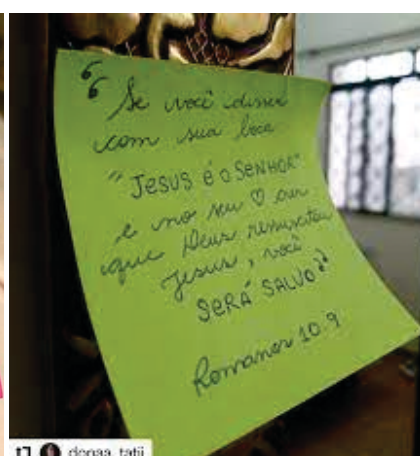 “Se você disser
com sua boca
"JESUS É O SENHOR"
e no seu ♡ crer
que Deus ressuscitou
Jesus, você
SERÁ SALVO”
Romanos 10.9
donaa_tatii